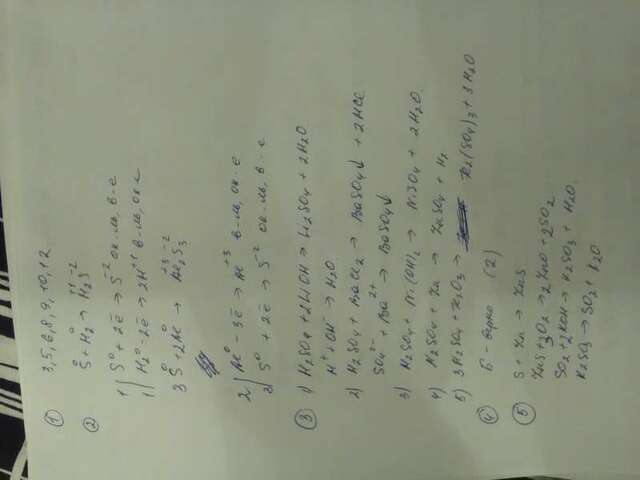 ① 3,5,6,8,9,10,12
② S⁰ + H₂⁰ → H₂⁺¹S⁻²
1 | S⁰ + 2ē → S⁻² ок-ль, в-е
1 | H₂⁰ - 2ē → 2H⁺¹ в-ль, ок-е
3S⁰ + 2Al⁰ → Al₂⁺³S₃⁻²
2 | Al⁰ - 3ē → Al⁺³ в-ль, ок-е
3 | S⁰ + 2ē → S⁻² ок-ль, в-е
③ 1) H₂SO₄ + 2LiOH → Li₂SO₄ + 2H₂O
H⁺ + OH⁻ → H₂O
2) H₂SO₄ + BaCl₂ → BaSO₄↓ + 2HCl
SO₄²⁻ + Ba²⁺ → BaSO₄↓
3) H₂SO₄ + Ni(OH)₂ → NiSO₄ + 2H₂O
4) H₂SO₄ + Zn → ZnSO₄ + H₂
5) 3H₂SO₄ + → (SO₄)₃ + 3H₂O
④ Б - верно (2)
⑤ S + Zn → ZnS
ZnS + 3O₂ → 2ZnO + 2SO₂
SO₂ + 2KOH → K₂SO₃ + H₂O
K₂SO₃ → SO₂ +